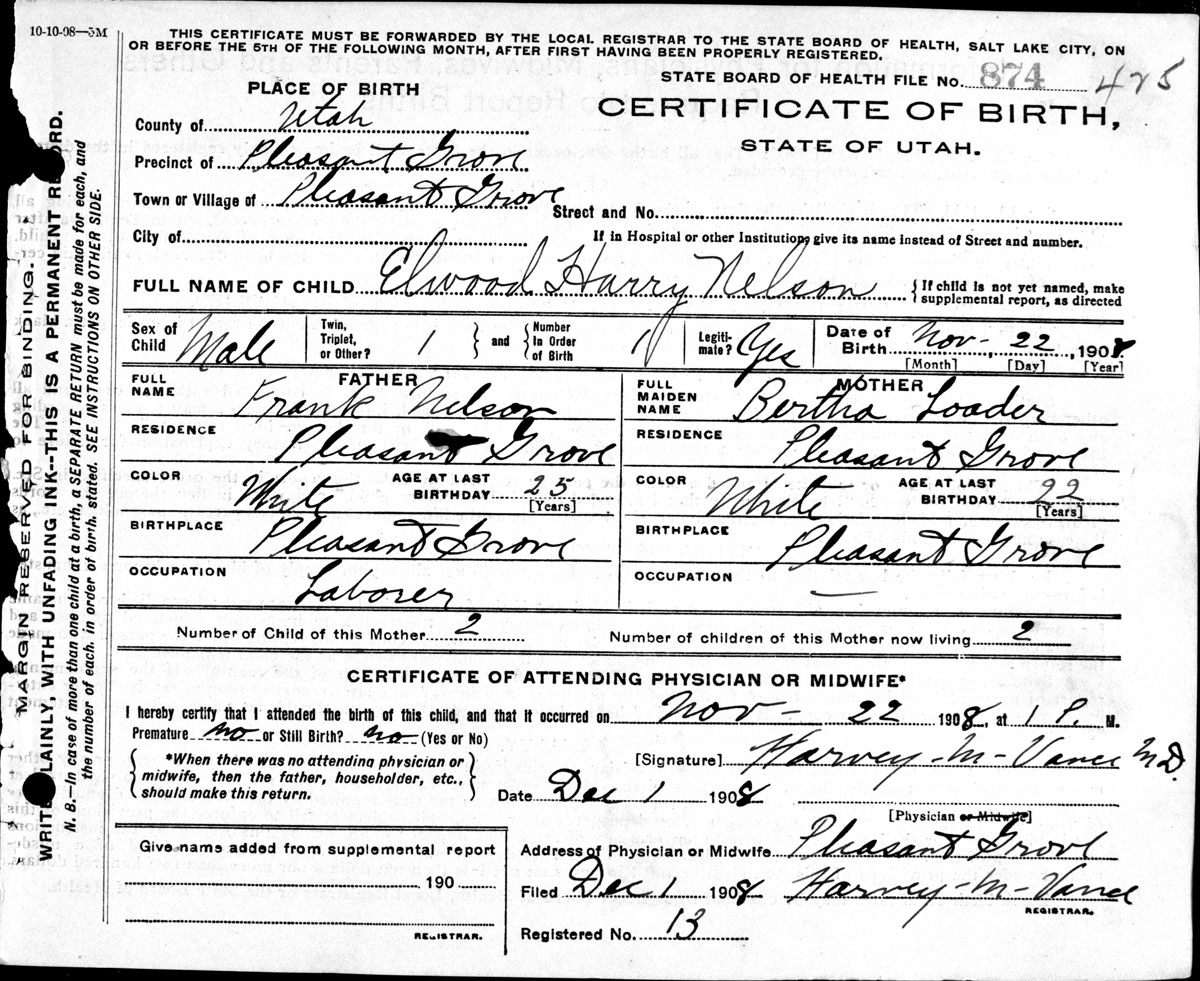 10-10-08—5M
THIS CERTIFICATE MUST BE FORWARDED BY THE LOCAL REGISTRAR TO THE STATE BOARD OF HEALTH, SALT LAKE CITY, ON
OR BEFORE THE 5TH OF THE FOLLOWING MONTH, AFTER FIRST HAVING BEEN PROPERLY REGISTERED.
STATE BOARD OF HEALTH FILE No. 874 475
PLACE OF BIRTH
CERTIFICATE OF BIRTH,
STATE OF UTAH.
County of Utah
Precinct of Pleasant Grove
Town or Village of Pleasant Grove
Street and No.
City of
If in Hospital or other Institution, give its name instead of Street and number.
FULL NAME OF CHILD Elwood Harry Nelson {If child is not yet named, make
supplemental report, as directed
Sex of Child Male
Twin, Triplet, or Other? 1 } and { Number In Order of Birth 1
Legiti-mate? Yes
Date of Birth Nov- 22, 1908.
[Month] [Day] [Year]
FATHER
FULL NAME Frank Nelson
RESIDENCE Pleasant Grove
COLOR White AGE AT LAST BIRTHDAY 25
[Years]
BIRTHPLACE Pleasant Grove
OCCUPATION Laborer
MOTHER
FULL MAIDEN NAME Bertha Loader
RESIDENCE Pleasant Grove
COLOR White AGE AT LAST BIRTHDAY 22
[Years]
BIRTHPLACE Pleasant Grove
OCCUPATION —
Number of Child of this Mother 2 Number of children of this Mother now living 2
CERTIFICATE OF ATTENDING PHYSICIAN OR MIDWIFE*
I hereby certify that I attended the birth of this child, and that it occurred on Nov- 22 1908, at 1 P. M.
Premature no or Still Birth? no (Yes or No)
{ *When there was no attending physician or
midwife, then the father, householder, etc.,
should make this return. }
[Signature] Harvey-M-Vance M.D.
Date Dec 1 1908
[Physician or Midwife]
Address of Physician or Midwife Pleasant Grove
Filed Dec 1 1908 Harvey-M-Vance
REGISTRAR.
Registered No. 13
Give name added from supplemental report
190
REGISTRAR.
MARGIN RESERVED FOR BINDING.
WRITE PLAINLY, WITH UNFADING INK--THIS IS A PERMANENT RECORD.
N. B.—In case of more than one child at a birth, a SEPARATE RETURN must be made for each, and
the number of each, in order of birth, stated. SEE INSTRUCTIONS ON OTHER SIDE.